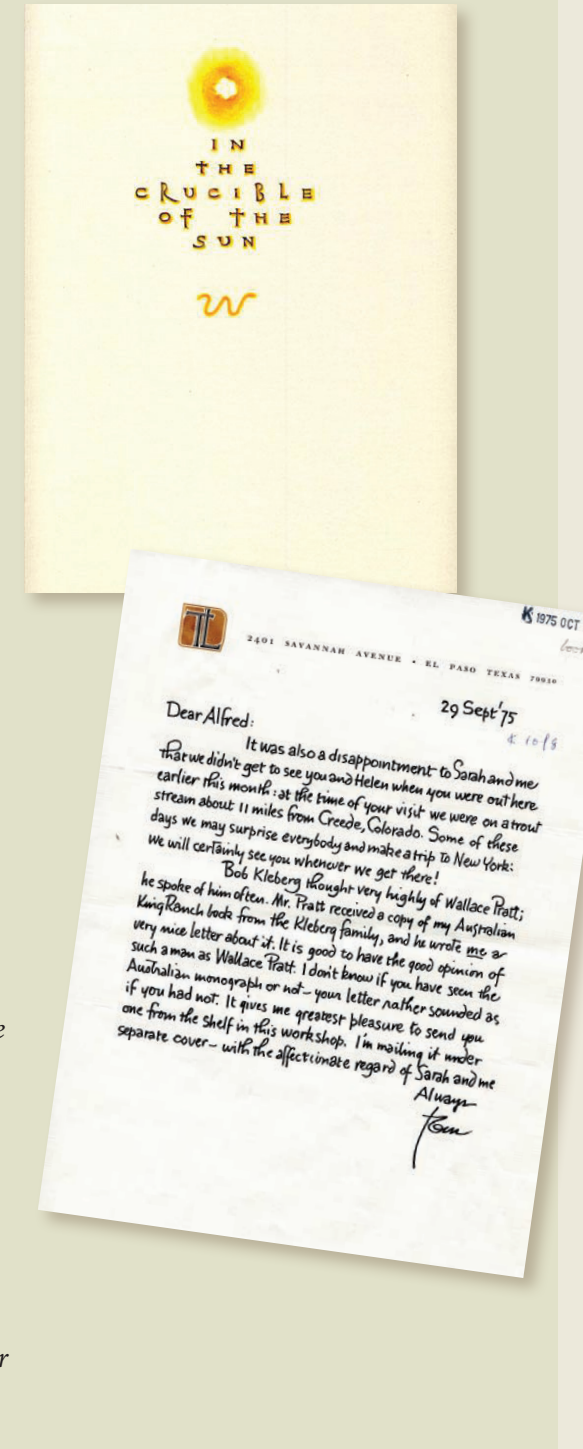 IN
THE
CRUCIBLE
OF THE
SUN
W
TL
2401 SAVANNAH AVENUE • EL PASO TEXAS 79930
K 1975 OCT
29 Sept '75
Dear Alfred:
It was also a disappointment to Sarah and me
that we didn't get to see you and Helen when you were out here
earlier this month: at the time of your visit we were on a trout
stream about 11 miles from Creede, Colorado. Some of these
days we may surprise everybody and make a trip to New York:
We will certainly see you whenever we get there!
Bob Kleberg thought very highly of Wallace Pratt;
he spoke of him often. Mr. Pratt received a copy of my Australian
King Ranch book from the Kleberg family, and he wrote me a
very nice letter about it. It is good to have the good opinion of
such a man as Wallace Pratt. I don't know if you have seen the
Australian monograph or not – your letter rather sounded as
if you had not. It gives me greatest pleasure to send you
one from the shelf in this workshop. I'm mailing it under
separate cover – with the affectionate regard of Sarah and me
Always
Tom
e
r